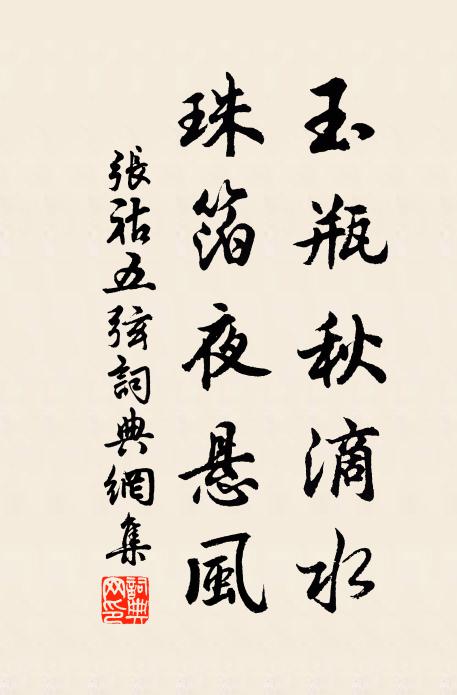 玉瓶秋滴水
珠箔夜悬風
張祜五弦詞典網集
詞典網印